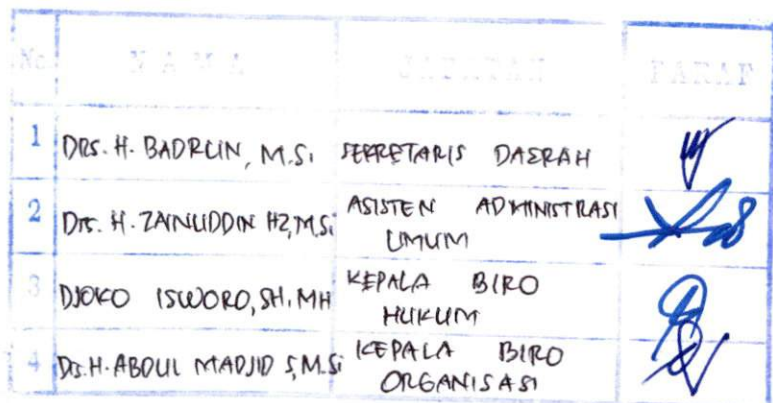 No NAMA JABATAN PARAF
1 DRS. H. BADRUN, M.Si SEKRETARIS DAERAH
2 Drs. H. ZAINUDDIN HZ, M.Si ASISTEN ADMINISTRASI
UMUM
3 DJOKO ISWORO, SH. MH KEPALA BIRO
HUKUM
4 Ds. H. ABDUL MADJID S, M.Si KEPALA BIRO
ORGANISASI